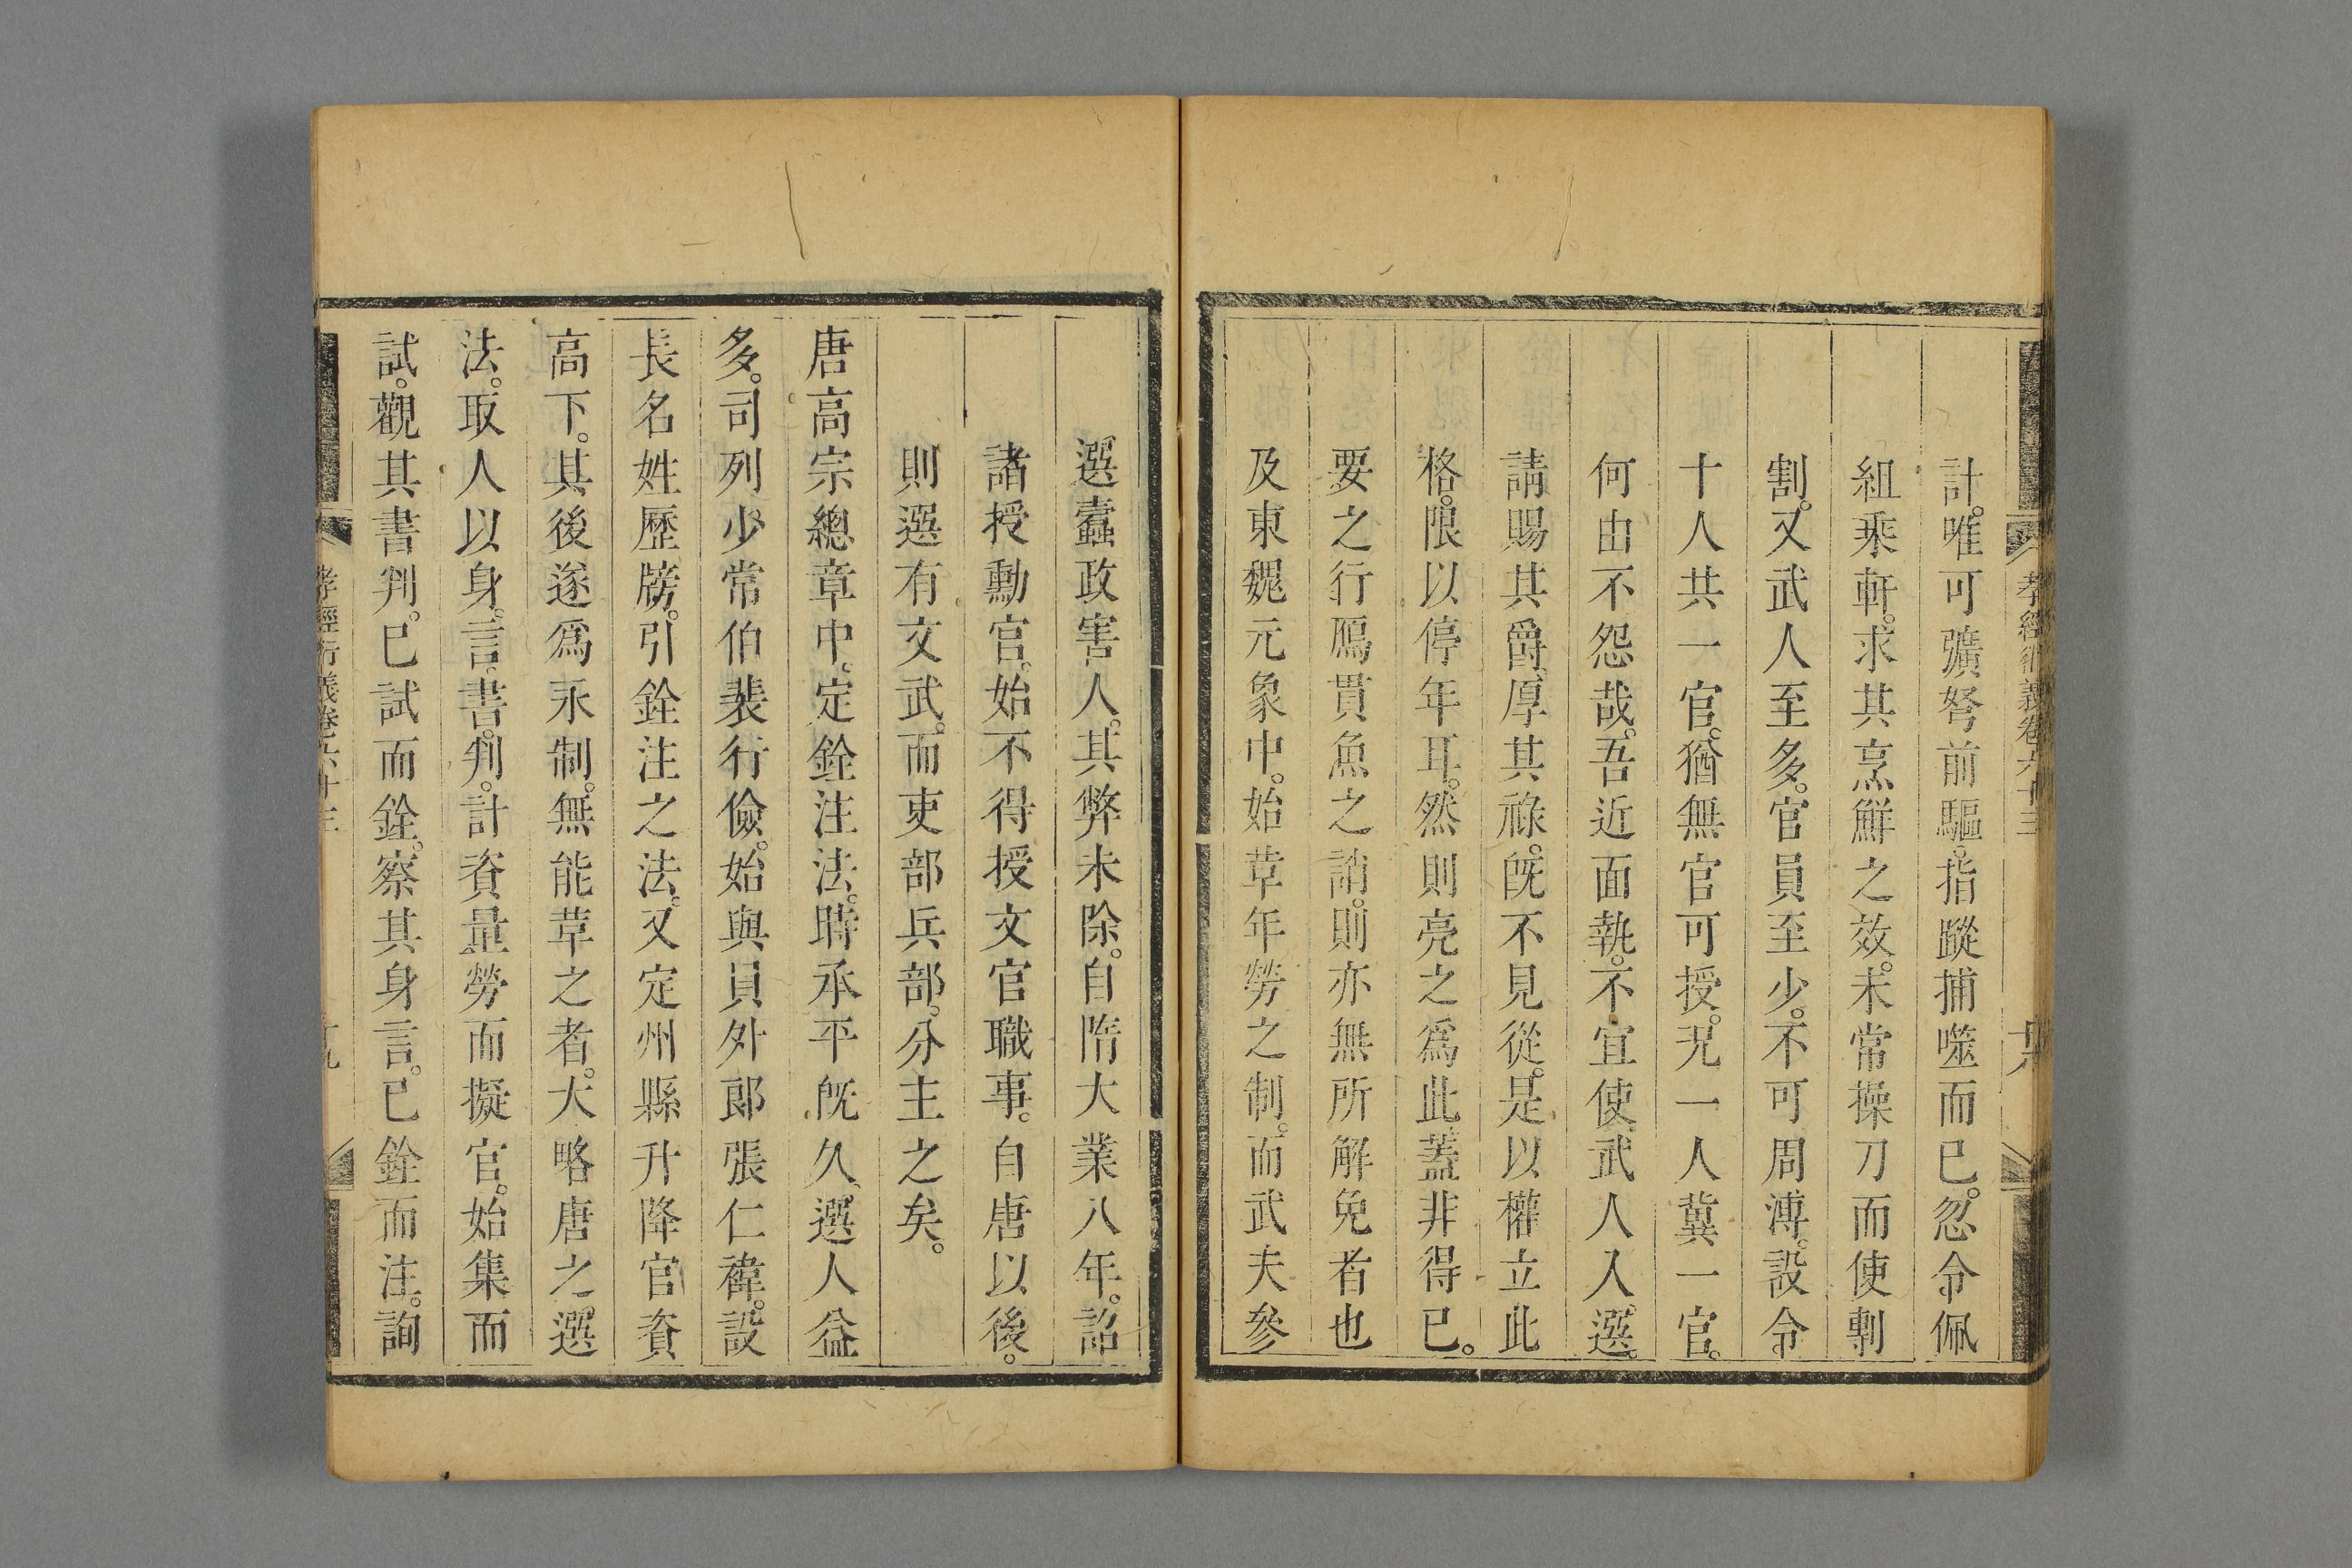 孝經衍義卷六十三 十八
計。唯可彍弩前驅。指蹤捕噬而已。忽令佩
組乘軒。求其烹鮮之效。未常操刀而使剸
割。又武人至多。官員至少。不可周溥。設令
十人共一官。猶無官可授。況一人冀一官。
何由不怨哉。吾近面執。不宜使武人入選。
請賜其爵。厚其祿。旣不見從。是以權立此
格。限以停年耳。然則亮之爲此。蓋非得已。
要之行鴈貫魚之誚。則亦無所解免者也
及東魏元象中。始革年勞之制。而武夫參
選蠹政害人。其弊未除。自隋大業八年。詔
諸授勳官。始不得授文官職事。自唐以後。
則選有文武。而吏部兵部。分主之矣。
唐高宗總章中。定銓注法。時承平旣久。選人益
多。司列少常伯裴行儉。始與員外郎張仁禕。設
長名姓歷牓。引銓注之法。又定州縣升降官資
高下。其後遂爲永制。無能革之者。大略唐之選
法。取人以身。言。書。判。計資量勞而擬官。始集而
試。觀其書判。已試而銓。察其身言。已銓而注。詢
孝經衍義卷六十三 十九